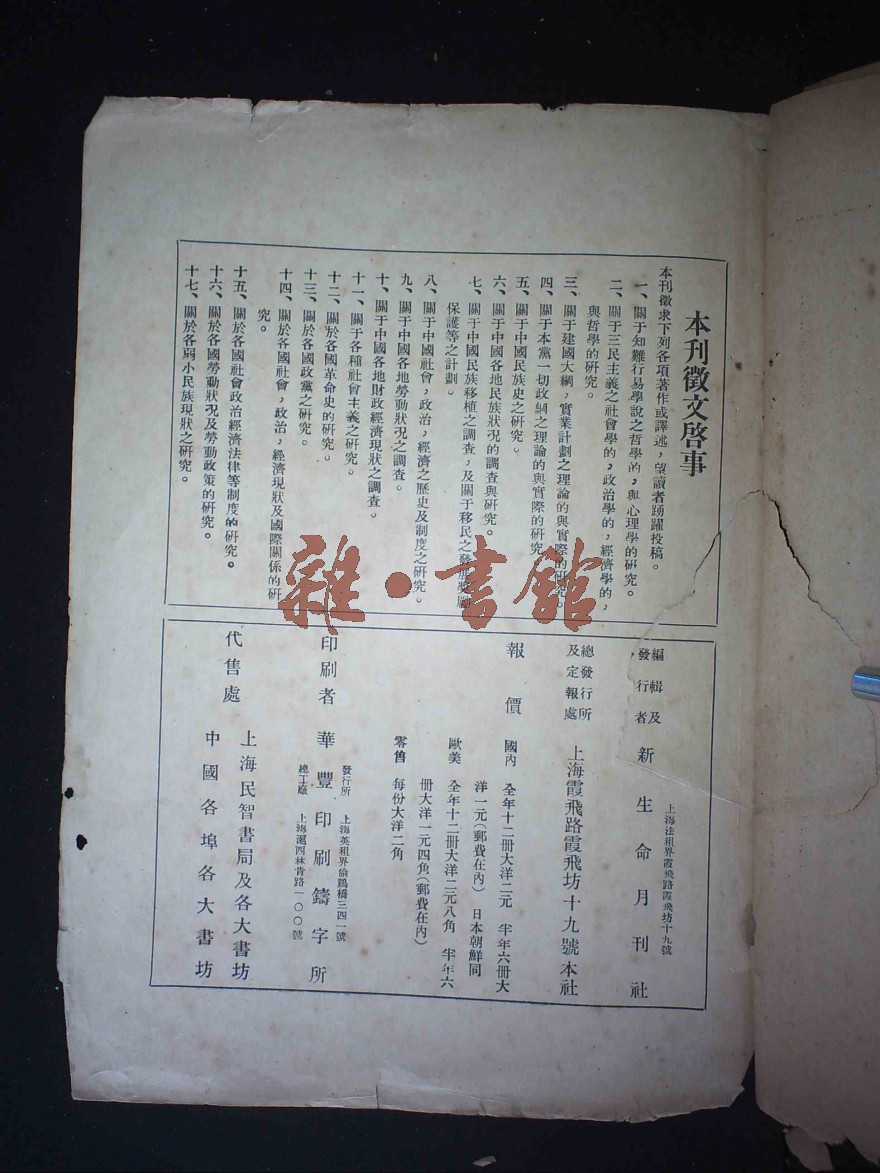 本刊徵文啓事
本刊徵求下列各項著作或譯述，望讀者踴躍投稿。
一、關于知難行易學說之哲學的，與心理學的研究。
二、關于三民主義之社會學的，政治學的，經濟學的，
與哲學的研究。
三、關于建國大綱，實業計劃之理論的與實際的研究。
四、關于本黨一切政綱之理論的與實際的研究
五、關于中國民族史之研究。
六、關于中國各地民族狀況的調查與研究。
七、關于中國民族移植之調查，及關于移民之發展獎勵
保護等之計劃。
八、關于中國社會，政治，經濟之歷史及制度之研究。
九、關于中國各地勞動狀況之調查。
十、關于中國各地財政經濟現狀之調查。
十一、關于各種社會主義之研究。
十二、關於各國革命史的研究。
十三、關於各國政黨之研究。
十四、關於各國社會，政治，經濟現狀及國際關係的研
究。
十五、關於各國社會政治經濟法律等制度的研究。
十六、關於各國勞動狀況及勞動政策的研究。
十七、關於各弱小民族現狀之研究。
編輯及
發行者
新生命月刊社
上海法租界霞飛路霞飛坊十九號
總發行所
及定報處
上海霞飛路霞飛坊十九號本社
報價
國內 全年十二冊大洋二元 半年六冊大
洋一元（郵費在內） 日本朝鮮同
歐美 全年十二冊大洋二元八角 半年六
冊大洋一元四角（郵費在內）
零售 每份大洋二角
印刷者 華豐印刷鑄字所
發行所 上海英租界偷鷄橋三四一號
總工廠 上海滬西林肯路一〇〇號
代售處
上海民智書局及各大書坊
中國各埠各大書坊
雜·書館